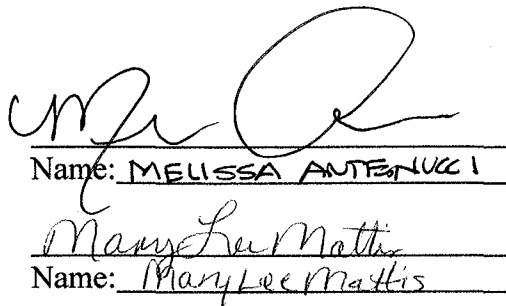 Name: MELISSA ANTONUCCI
Mary Lee Mattis
Name: Mary Lee Mattis